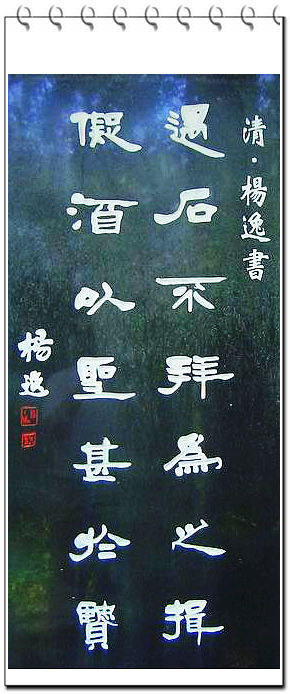 清·楊逸書
遇石不拜為之揖
假酒以聖甚於賢
楊逸